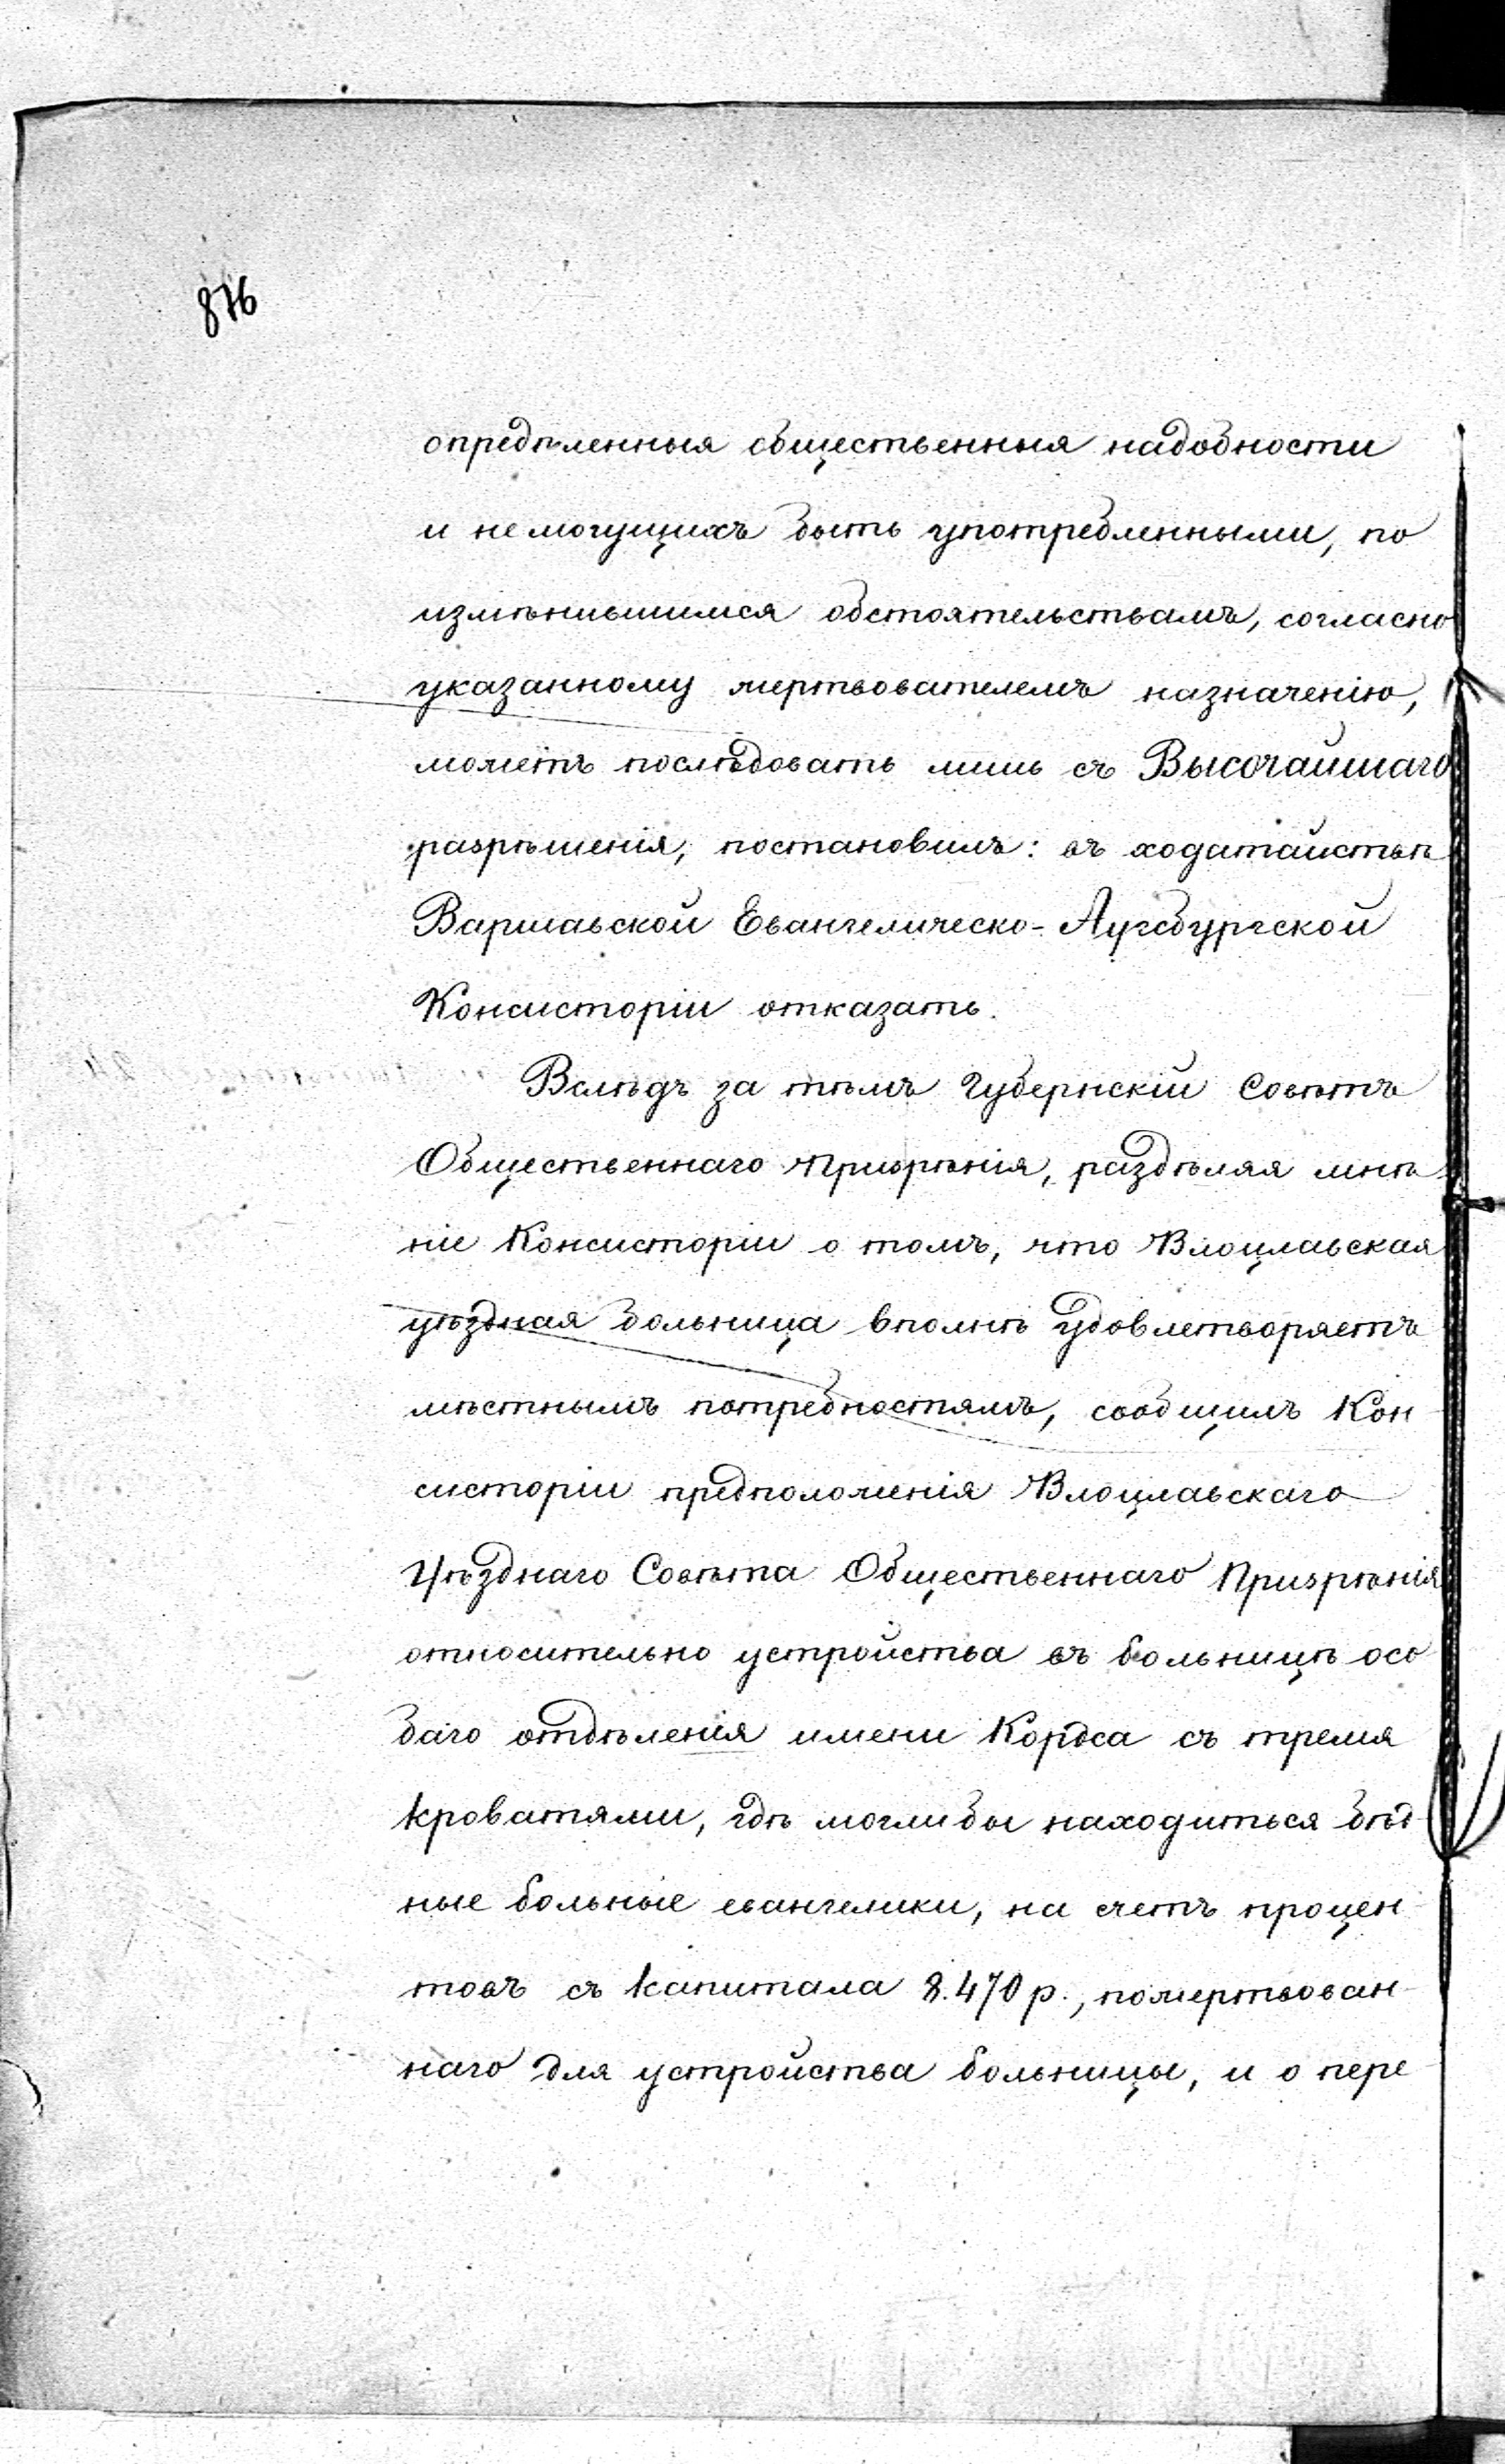 876
опредѣленныя общественныя надобности
и немогущихъ быть употребленными, по
измѣнившимся обстоятельствамъ, согласно
указанному жертвователемъ назначенію,
можетъ послѣдовать лишь съ Высочайшаго
разрѣшенія, постановилъ: въ ходатайствѣ
Варшавской Евангелическо-Аугсбургской
Консисторіи отказать.
Вслѣдъ за тѣмъ Губернскій Совѣтъ
Общественнаго Призрѣнія, раздѣляя мнѣ
ніе Консисторіи о томъ, что Влоцлавская
уѣздная больница вполнѣ удовлетворяетъ
мѣстнымъ потребностямъ, сообщилъ Кон
систоріи предположенія Влоцлавскаго
Уѣзднаго Совѣта Общественнаго Призрѣнія
относительно устройства въ больницѣ осо
баго отдѣленія имени Кордса съ тремя
кроватями, гдѣ моглибы находиться бѣд-
ные больные евангелики, на счетъ процен-
товъ съ капитала 8.470 р., пожертвован-
наго для устройства больницы, и о пере